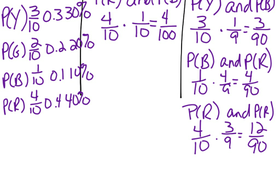 P(Y) 3/10 0.3 30%
P(G) 2/10 0.2 20%
P(B) 1/10 0.1 10%
P(R) 4/10 0.4 40%
4/10 · 1/10 = 4/100
P(Y) and P(B)
3/10 · 1/9 = 3/90
P(B) and P(R)
1/10 · 4/9 = 4/90
P(R) and P(R)
4/10 · 3/9 = 12/90